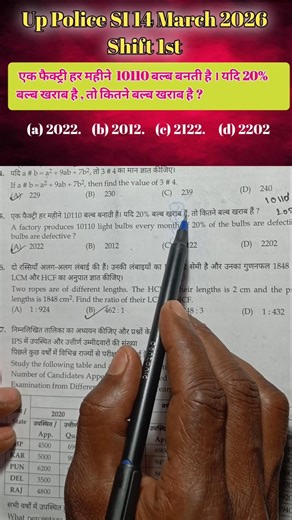 Up Police SI 14 March 2026
Shift 1st
एक फैक्ट्री हर महीने 10110 बल्ब बनती है । यदि 20%
बल्ब खराब है , तो कितने बल्ब खराब है ?
(a) 2022. (b) 2012. (c) 2122. (d) 2202
यदि a # b = a² + 9ab + 7b², तो 3 # 4 का मान ज्ञात कीजिए।
If a # b = a² + 9ab + 7b², then find the value of 3 # 4.
(A) 229 (B) 230 (C) 239 (D) 240
10110
एक फैक्ट्री हर महीने 10110 बल्ब बनाती है। यदि 20% बल्ब खराब हैं, तो कितने बल्ब खराब हैं ?
A factory produces 10110 light bulbs every month. 20% of the bulbs are
bulbs are defective ?
(A) 2022 (B) 2012 (D) 2202
दो रस्सियाँ अलग-अलग लंबाई की हैं। उनकी लंबाइयों का सेमी है और उनका गुणनफल 1848
LCM और HCF का अनुपात ज्ञात कीजिए।
Two ropes are of different lengths. The their lengths is 2 cm and the
lengths is 1848 cm². Find the ratio of their
(A) 1 : 924 (B) 462 : 1 (D) 1 : 432
निम्नलिखित तालिका का अध्ययन कीजिए और
IPS में उपस्थित और उत्तीर्ण उम्मीदवारों की संख्या
पिछले कुछ वर्षों में विभिन्न राज्यों से
Study the following table and
Number of Candidates
Examination from
2020
उपस्थित /
App.
4500
KAR 5000
PUN 6200
DEL 3500
RAJ 4800
सभी वर्षों में उपस्थित
What